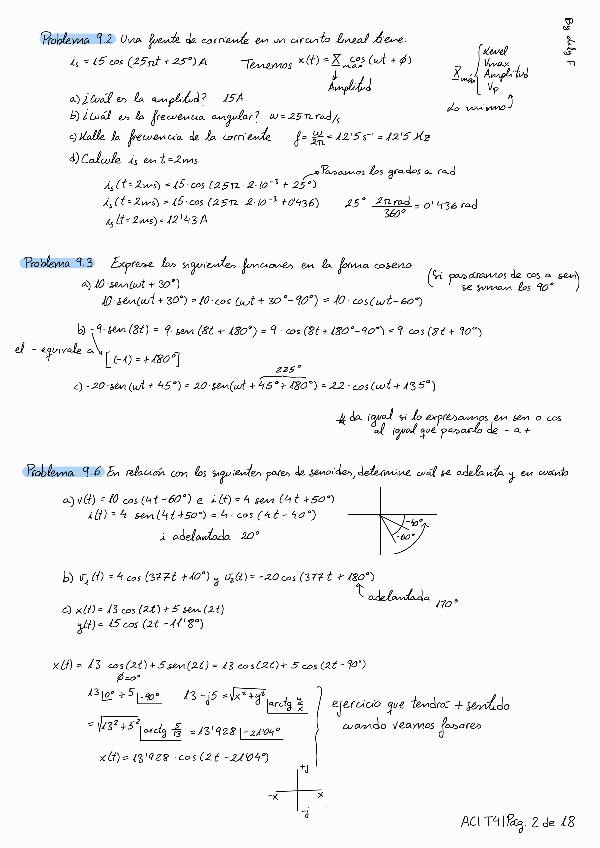 By duly F
Problema 9.2 Una fuente de corriente en un circuito lineal tiene:
is = 15 cos (25πt + 25°) A Tenemos x(t) = X máx cos (ωt + ϕ)
Amplitud
X máx { Xevel
Vmax
Amplitud
Vp
lo mismo
a) ¿Cuál es la amplitud? 15A
b) ¿Cuál es la frecuencia angular? ω = 25π rad/s
c) Halle la frecuencia de la corriente f = ω/2π = 12'5 s⁻¹ = 12'5 Hz
d) Calcule is en t = 2ms
Pasamos los grados a rad
is (t = 2ms) = 15·cos (25π·2·10⁻³ + 25°)
is (t = 2ms) = 15·cos (25π·2·10⁻³ + 0'436) 25° 2π rad/360° = 0'436 rad
is (t = 2ms) = 12'43 A
Problema 9.3 Exprese las siguientes funciones en la forma coseno
a) 10·sen(ωt + 30°) (Si pasáramos de cos a sen
se suman los 90°)
10·sen(ωt + 30°) = 10·cos (ωt + 30° - 90°) = 10·cos(ωt - 60°)
b) -9·sen (8t) = 9·sen (8t + 180°) = 9·cos (8t + 180° - 90°) = 9 cos (8t + 90°)
el - equivale a [(-1) = +180°]
225°
c) -20·sen(ωt + 45°) = 20·sen(ωt + 45° + 180°) = 22·cos(ωt + 135°)
* da igual si lo expresamos en sen o cos
al igual que pasarlo de - a +
Problema 9.6 En relación con los siguientes pares de senoides, determine cuál se adelanta y en cuánto
a) v(t) = 10 cos (4t - 60°) e i(t) = 4 sen (4t + 50°)
i(t) = 4 sen(4t + 50°) = 4·cos (4t - 40°)
i adelantada 20°
-40°
-60°
b) v₁(t) = 4 cos (377t + 10°) y v₂(t) = -20 cos (377t + 180°)
adelantada 170°
c) x(t) = 13 cos(2t) + 5 sen(2t)
y(t) = 15 cos (2t - 11'8°)
x(t) = 13 cos(2t) + 5 sen(2t) = 13 cos(2t) + 5 cos (2t - 90°)
ϕ=0°
13|0° + 5|-90° 13 - j5 = √x² + y² |arctg y/x
= √13² + 5² |arctg 5/13 = 13'928 |-21'04°
x(t) = 13'928·cos (2t - 21'04°)
ejercicio que tendrá + sentido
cuando veamos fasores
+j
-x x
-j
ACI T4|Pág. 2 de 18